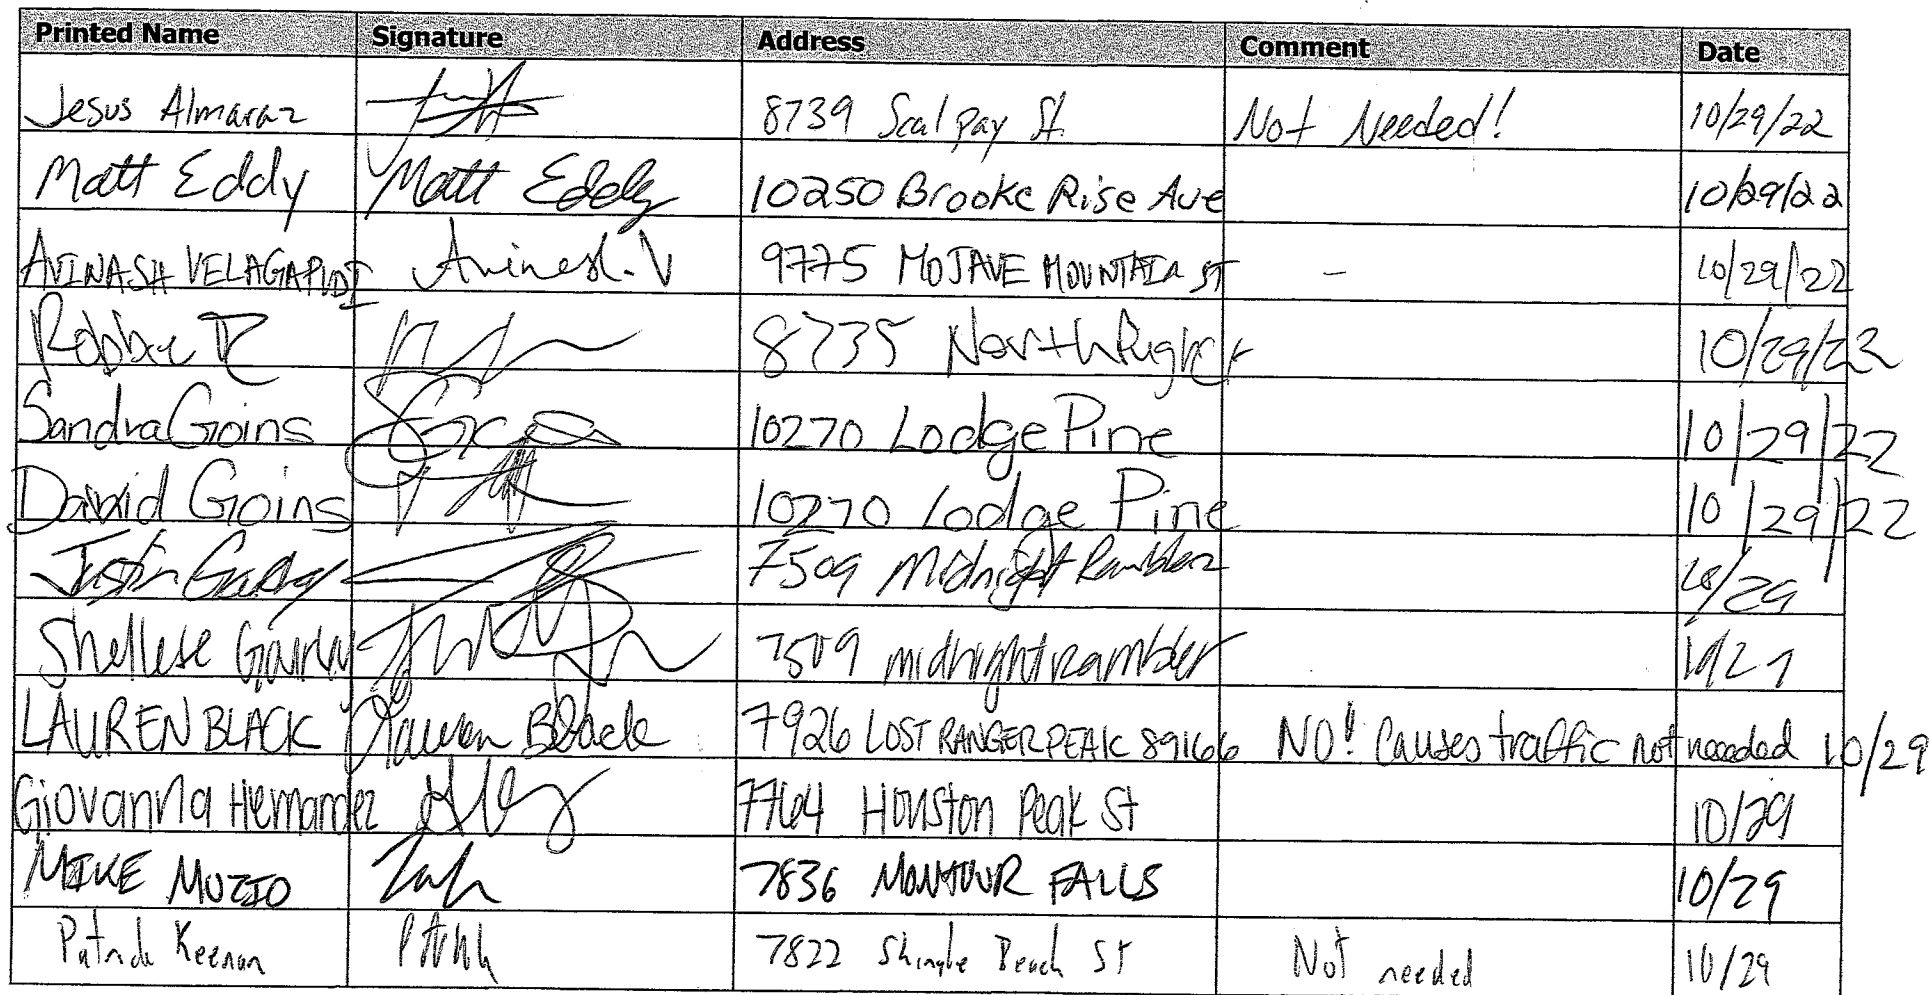 Printed Name Signature Address Comment Date
Jesus Almaraz 8739 Scalpay St. Not Needed! 10/29/22
Matt Eddy Matt Eddy 10250 Brooke Rise Ave 10/29/22
AVINASH VELAGAPUDI Avinash. V 9775 MOJAVE MOUNTAIN ST - 10/29/22
8735 10/29/22
Sandra Goins 10270 Lodge Pine 10/29/22
David Goins 10270 Lodge Pine 10/29/22
Justin 7509 Midnight Rambler 10/29
Shellese 7509 midnight rambler 10/29
LAUREN BLACK Lauren Black 7926 LOST RANGER PEAK 89166 NO! Causes traffic not needed 10/29
Giovanna Hernandez 7764 Houston Peak St 10/29
MIKE MUZIO 7836 MONTOUR FALLS 10/29
Patrick Keenan 7822 Shingle Beach St Not needed 10/29